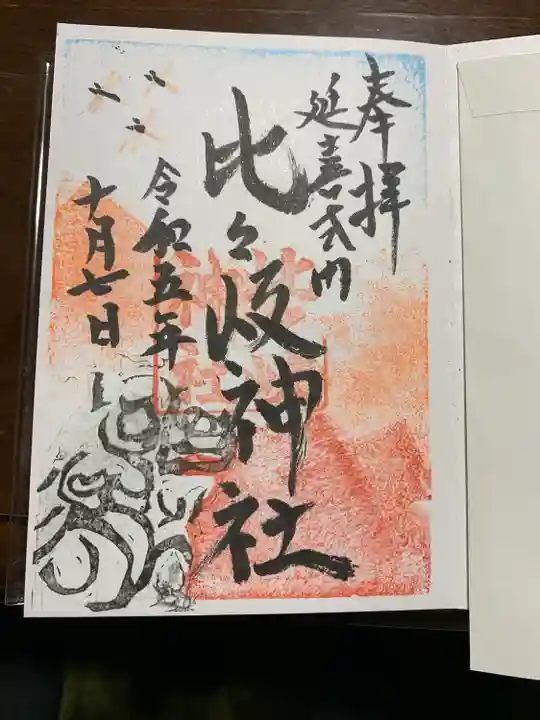 奉拝
延喜式内
比々岐神社
令和五年
十月七日